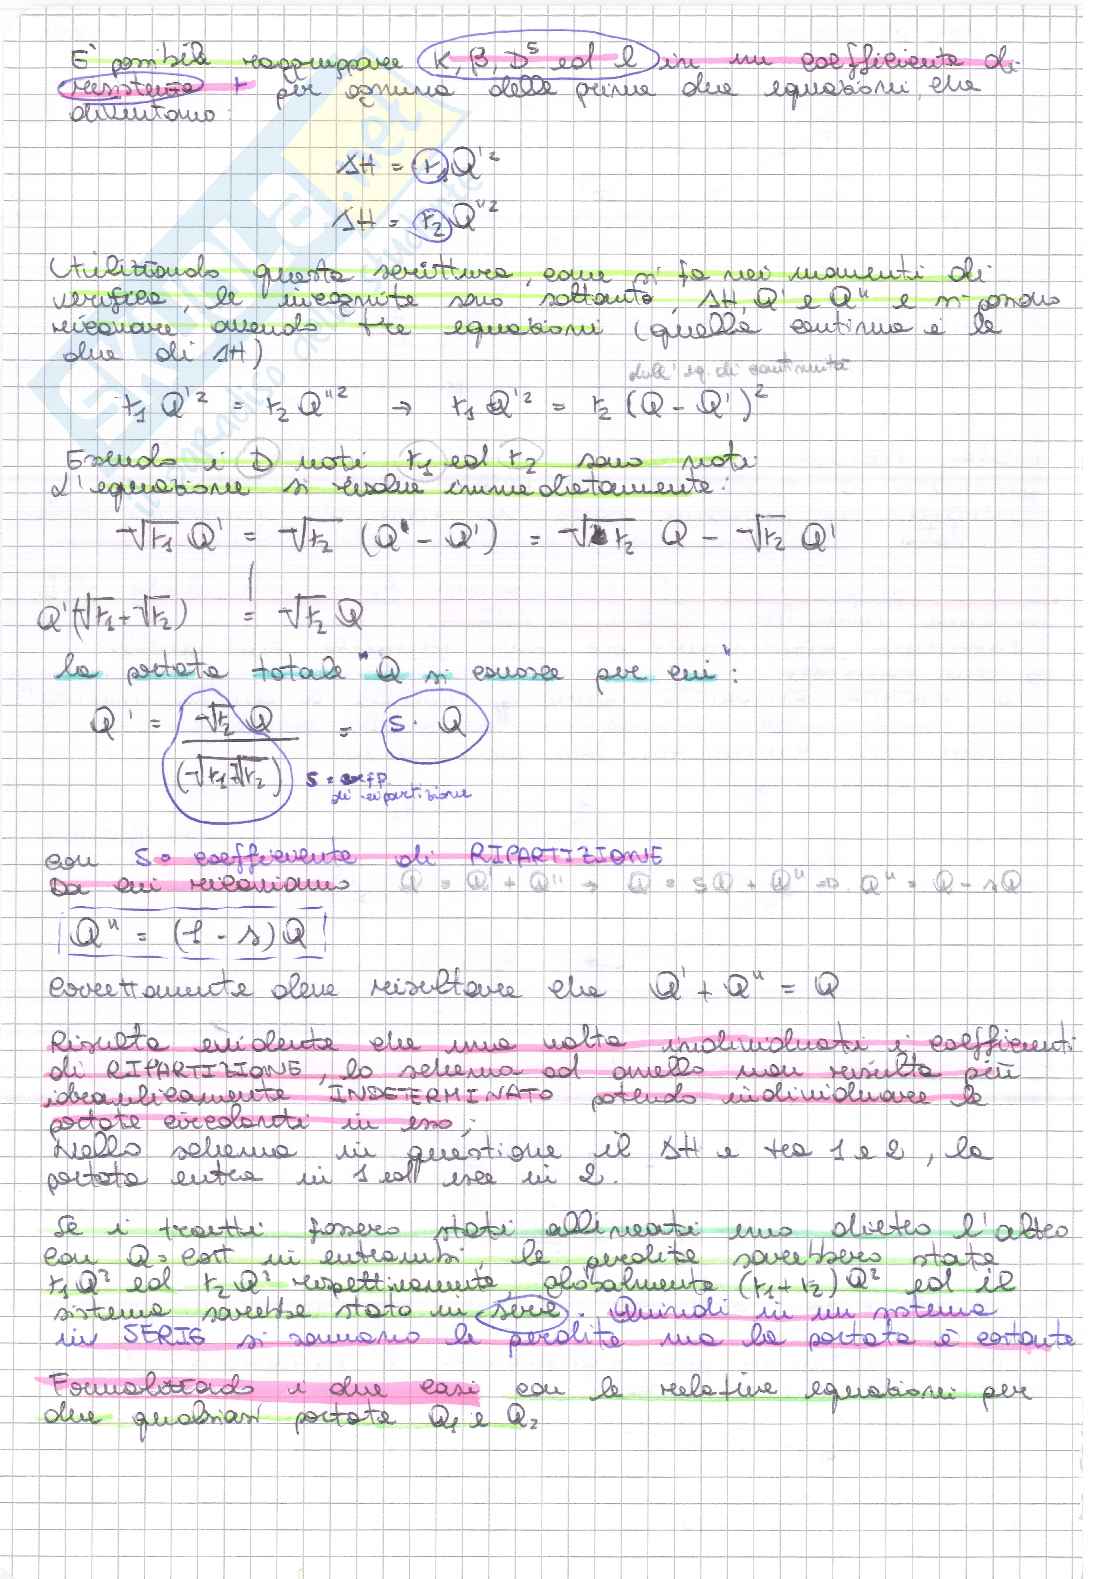 E' possibile raggruppare K, β, D⁵ ed l in un coefficiente di
resistenza r per ognuna delle prime due equazioni, che
diventano:
ΔH = r₁ Q'²
ΔH = r₂ Q"²
Utilizzando questa scrittura, come si fa nei momenti di
verifica, le incognite sono soltanto, ΔH, Q' e Q" e si possono
ricavare avendo tre equazioni (quella continua e le
due di ΔH)
dall' eq. di continuità
r₁ Q'² = r₂ Q"² → r₁ Q'² = r₂ (Q - Q')²
Essendo i D noti r₁ ed r₂ sono noti
L'equazione si risolve immediatamente:
√r₁ Q' = √r₂ (Q - Q') = √r₂ Q - √r₂ Q'
Q'(√r₁+√r₂) = √r₂ Q
la portata totale "Q si conosce per cui":
Q' = √r₂ Q / (√r₁+√r₂) = S · Q
S = coeff
di ripartizione
con S = coefficiente di RIPARTIZIONE
Da cui ricaviamo Q = Q' + Q" → Q = SQ + Q" => Q" = Q - sQ
Q" = (1 - s)Q
Correttamente deve risultare che Q' + Q" = Q
Risulta evidente che una volta individuati i coefficienti
di RIPARTIZIONE, lo schema ad anello non risulta più
idraulicamente INDETERMINATO potendo individuare le
portate circolanti in esso;
Nello schema in questione il ΔH è tra 1 e 2, la
portata entra in 1 ed esce in 2.
Se i tratti fossero stati allineati uno dietro l'altro
con Q = cost in entrambi, le perdite sarebbero state
r₁Q² ed r₂Q² rispettivamente, globalmente (r₁+r₂)Q² ed il
sistema sarebbe stato in serie. Quindi in un sistema
in SERIE si sommano le perdite ma la portata è costante
Formalizzando i due casi con le relative equazioni per
due qualsiasi portate Q₁ e Q₂